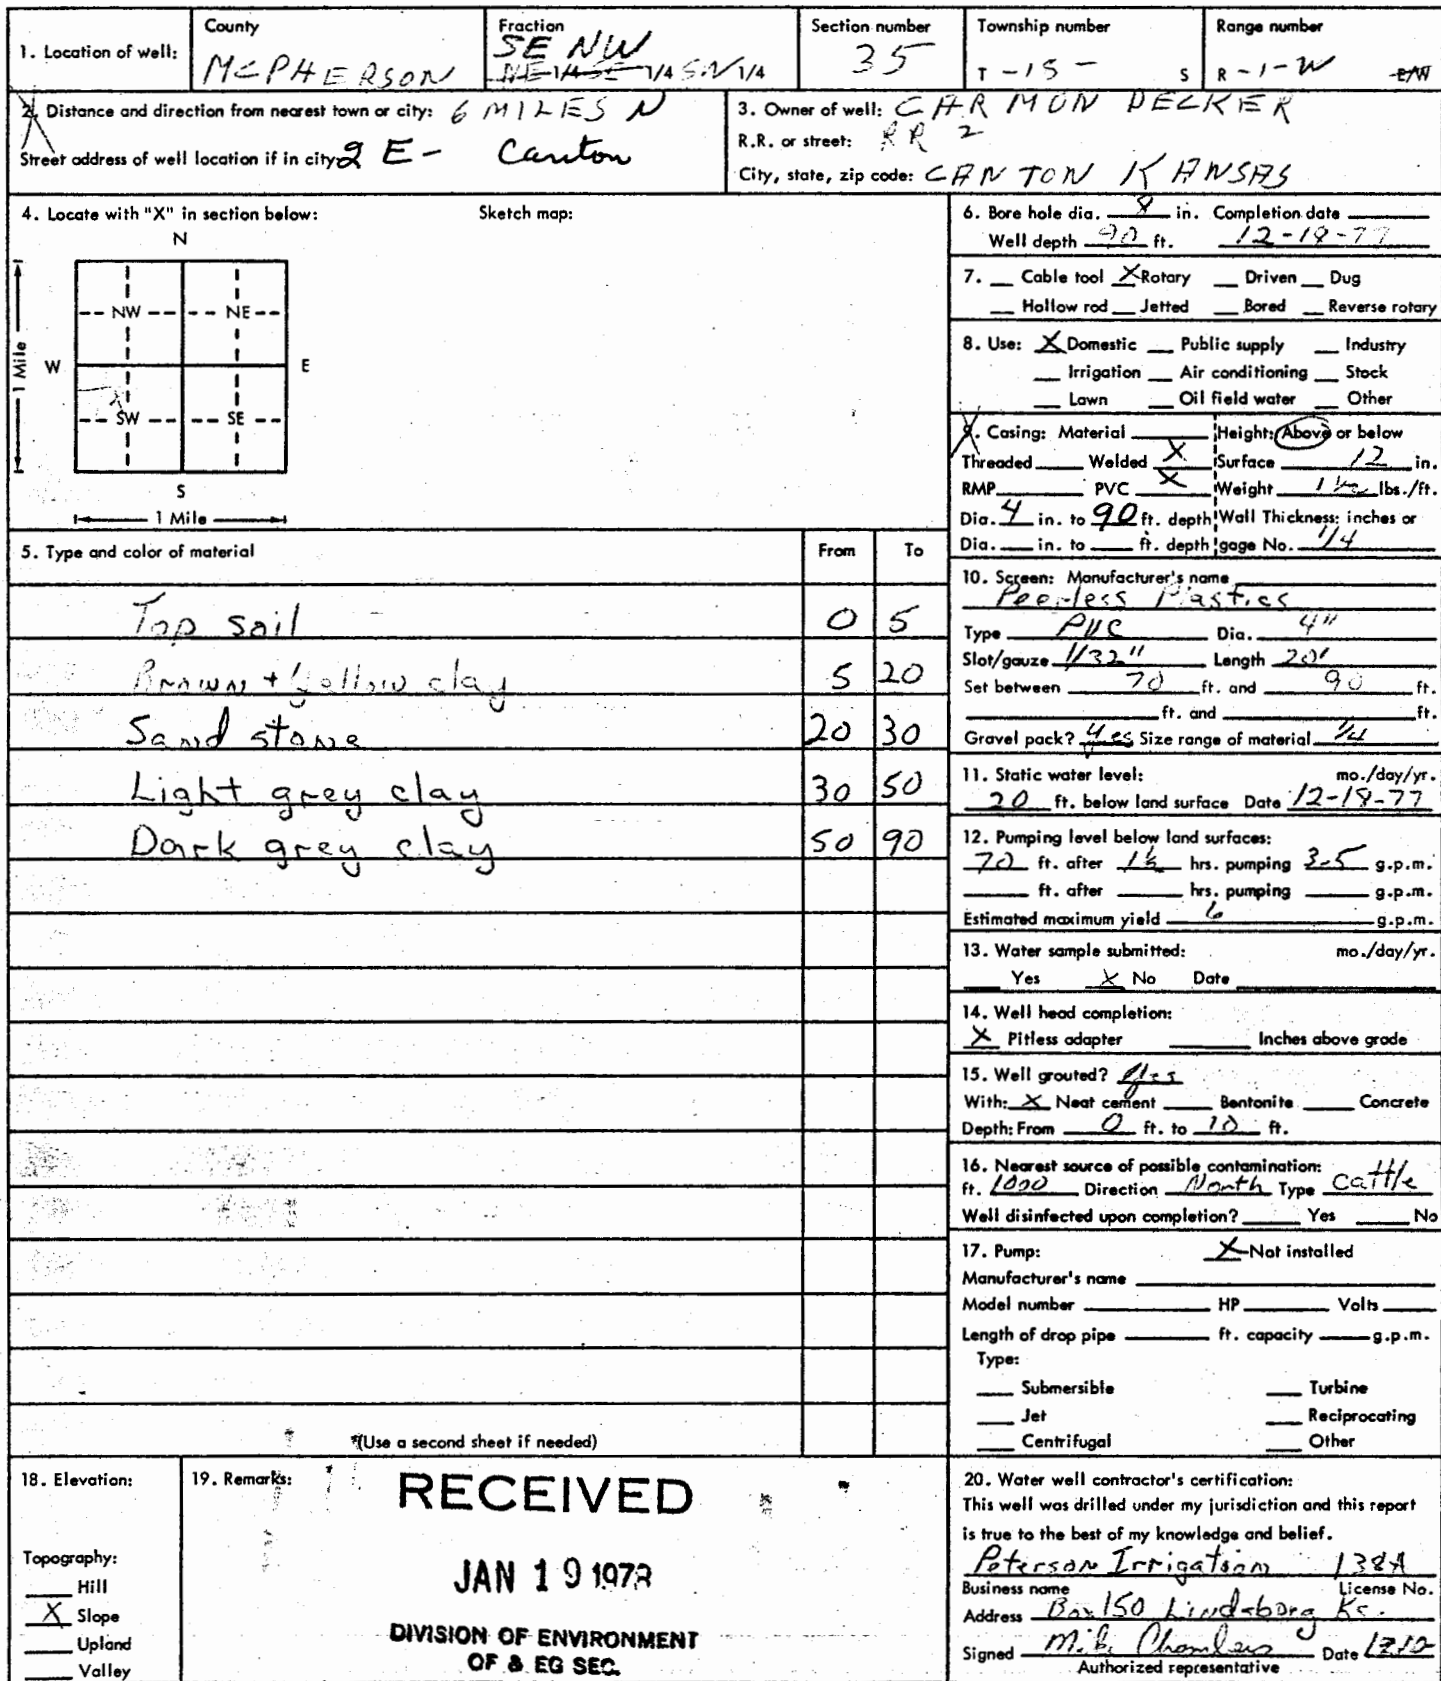 1. Location of well:
County
McPHERSON
Fraction
SE NW
NE 1/4 SE 1/4 SW 1/4
Section number
35
Township number
T -15- S
Range number
R -1-W E/W
2. Distance and direction from nearest town or city: 6 MILES N
Street address of well location if in city: 2 E- Canton
3. Owner of well: CARMON DECKER
R.R. or street: RR 2
City, state, zip code: CANTON KANSAS
4. Locate with "X" in section below:
Sketch map:
N
NW NE
W E
1 Mile
X
SW SE
S
1 Mile
6. Bore hole dia. 8 in. Completion date
Well depth 90 ft. 12-18-77
7. Cable tool X Rotary Driven Dug
Hollow rod Jetted Bored Reverse rotary
8. Use: X Domestic Public supply Industry
Irrigation Air conditioning Stock
Lawn Oil field water Other
9. Casing: Material Height: Above or below
Threaded Welded X Surface 12 in.
RMP PVC X Weight 1 1/2 lbs./ft.
Dia. 4 in. to 90 ft. depth Wall Thickness: inches or
Dia. in. to ft. depth gage No. 1/4
5. Type and color of material From To
Top soil 0 5
Brown + Yellow clay 5 20
Sand stone 20 30
Light grey clay 30 50
Dark grey clay 50 90
(Use a second sheet if needed)
10. Screen: Manufacturer's name
Peerless Plastics
Type PVC Dia. 4"
Slot/gauze 1/32" Length 20'
Set between 70 ft. and 90 ft.
ft. and ft.
Gravel pack? yes Size range of material 1/4
11. Static water level: mo./day/yr.
20 ft. below land surface Date 12-18-77
12. Pumping level below land surfaces:
70 ft. after 1 1/2 hrs. pumping 3-5 g.p.m.
ft. after hrs. pumping g.p.m.
Estimated maximum yield 6 g.p.m.
13. Water sample submitted: mo./day/yr.
Yes X No Date
14. Well head completion:
X Pitless adapter Inches above grade
15. Well grouted? yes
With: X Neat cement Bentonite Concrete
Depth: From 0 ft. to 10 ft.
16. Nearest source of possible contamination:
ft. 1000 Direction North Type Cattle
Well disinfected upon completion? Yes No
17. Pump: X Not installed
Manufacturer's name
Model number HP Volts
Length of drop pipe ft. capacity g.p.m.
Type:
Submersible Turbine
Jet Reciprocating
Centrifugal Other
18. Elevation:
Topography:
Hill
X Slope
Upland
Valley
19. Remarks:
RECEIVED
JAN 19 1978
DIVISION OF ENVIRONMENT
OF & EG SEC.
20. Water well contractor's certification:
This well was drilled under my jurisdiction and this report
is true to the best of my knowledge and belief.
Peterson Irrigation 138A
Business name License No.
Address Box 150 Lindsborg Ks.
Signed Mike Chambers Date
Authorized representative